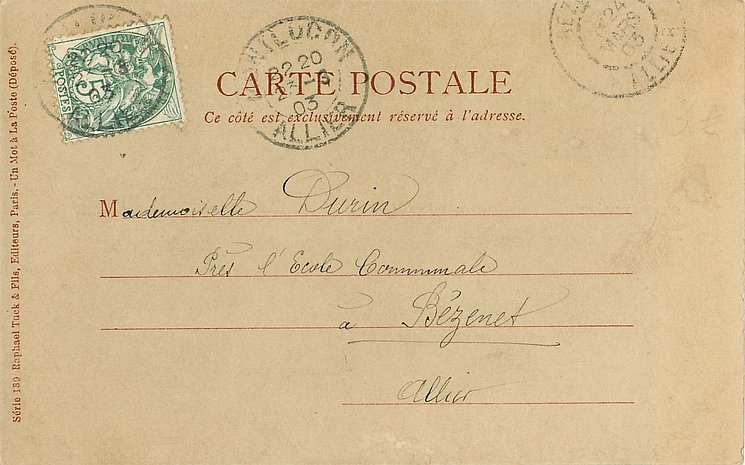 CARTE POSTALE
Ce côté est exclusivement réservé à l'adresse.
Mademoiselle Durin
Près l'Ecole Communale
à Bézenet
Allier
Série 139 Raphael Tuck & Fils, Editeurs, Paris. - Un Mot à La Poste (Déposé).
POSTES 5
MONTLUCON
22 20
23 - 3
03
ALLIER
24
MARS
03
ALLIER